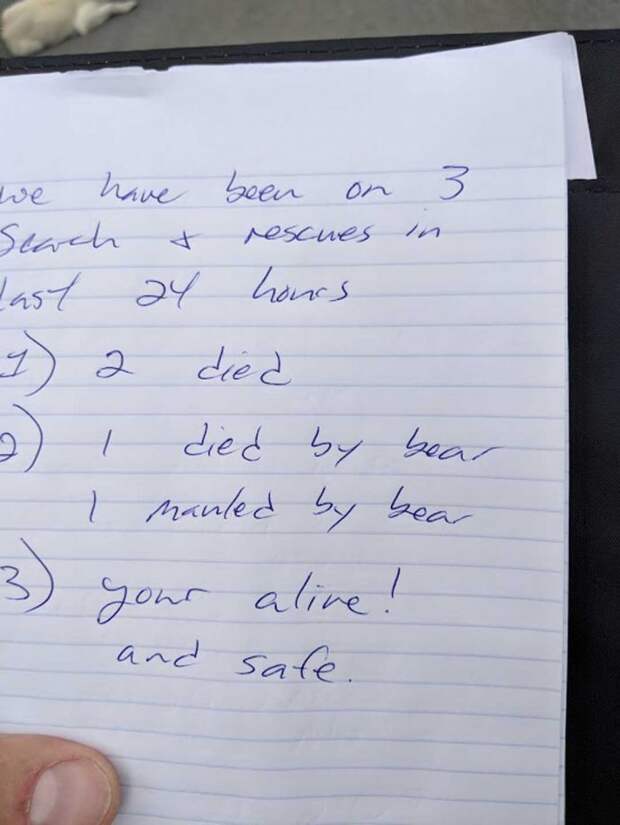 we have been on 3
Search & rescues in
last 24 hours
1) 2 died
2) 1 died by bear
1 mauled by bear
3) your alive!
and safe.